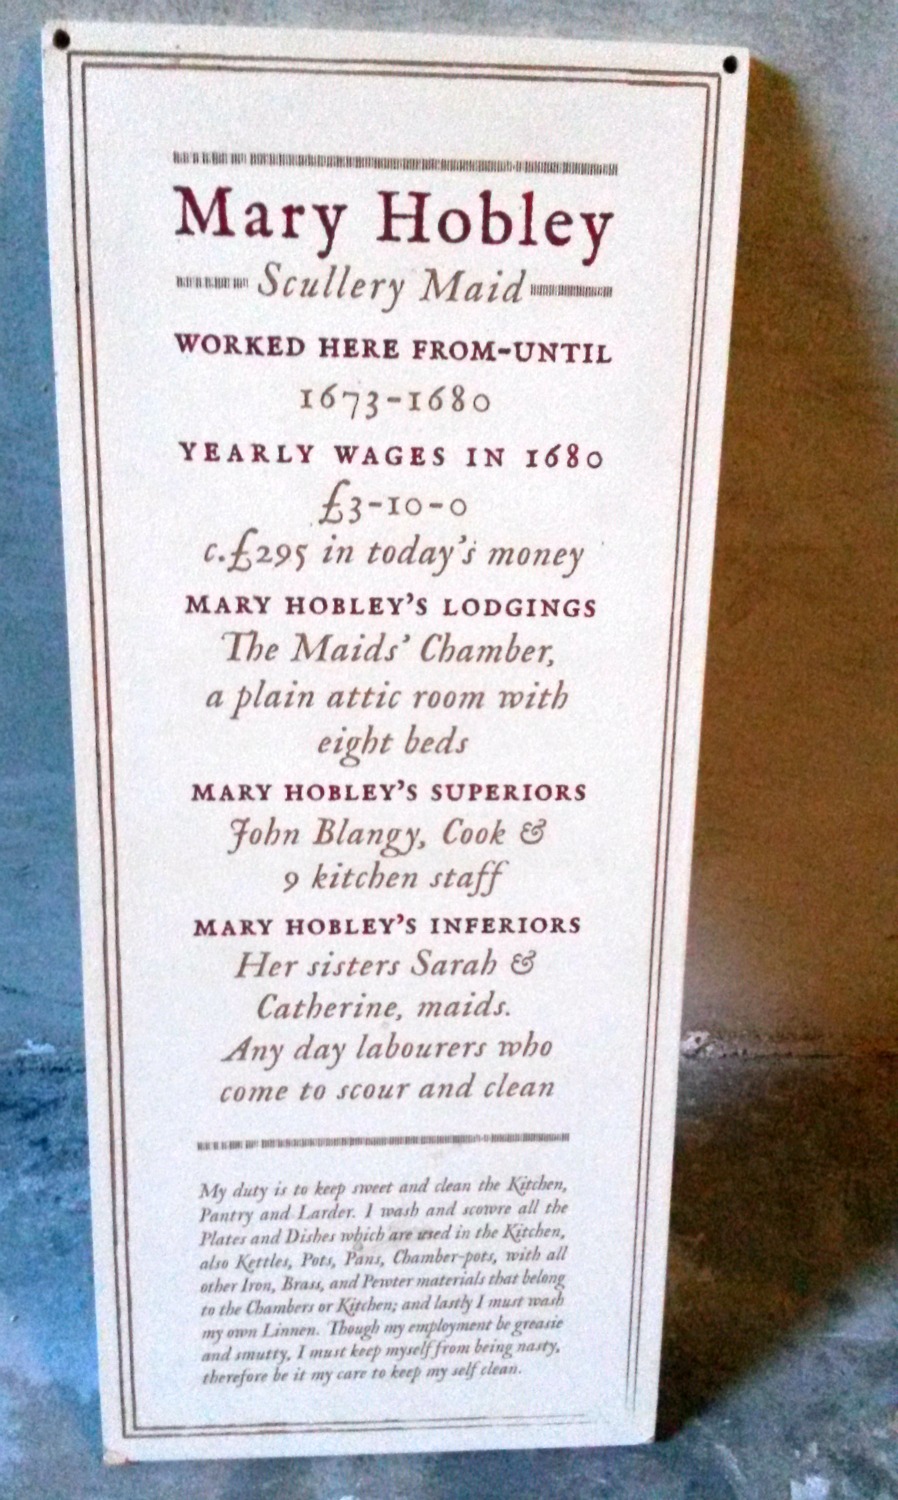 Mary Hobley
Scullery Maid
WORKED HERE FROM-UNTIL
1673-1680
YEARLY WAGES IN 1680
£3-10-0
c.£295 in today's money
MARY HOBLEY'S LODGINGS
The Maids' Chamber,
a plain attic room with
eight beds
MARY HOBLEY'S SUPERIORS
John Blangy, Cook &
9 kitchen staff
MARY HOBLEY'S INFERIORS
Her sisters Sarah &
Catherine, maids.
Any day labourers who
come to scour and clean
My duty is to keep sweet and clean the Kitchen,
Pantry and Larder. I wash and scowre all the
Plates and Dishes which are used in the Kitchen,
also Kettles, Pots, Pans, Chamber-pots, with all
other Iron, Brass, and Pewter materials that belong
to the Chambers or Kitchen; and lastly I must wash
my own Linnen. Though my employment be greasie
and smutty, I must keep myself from being nasty,
therefore be it my care to keep my self clean.